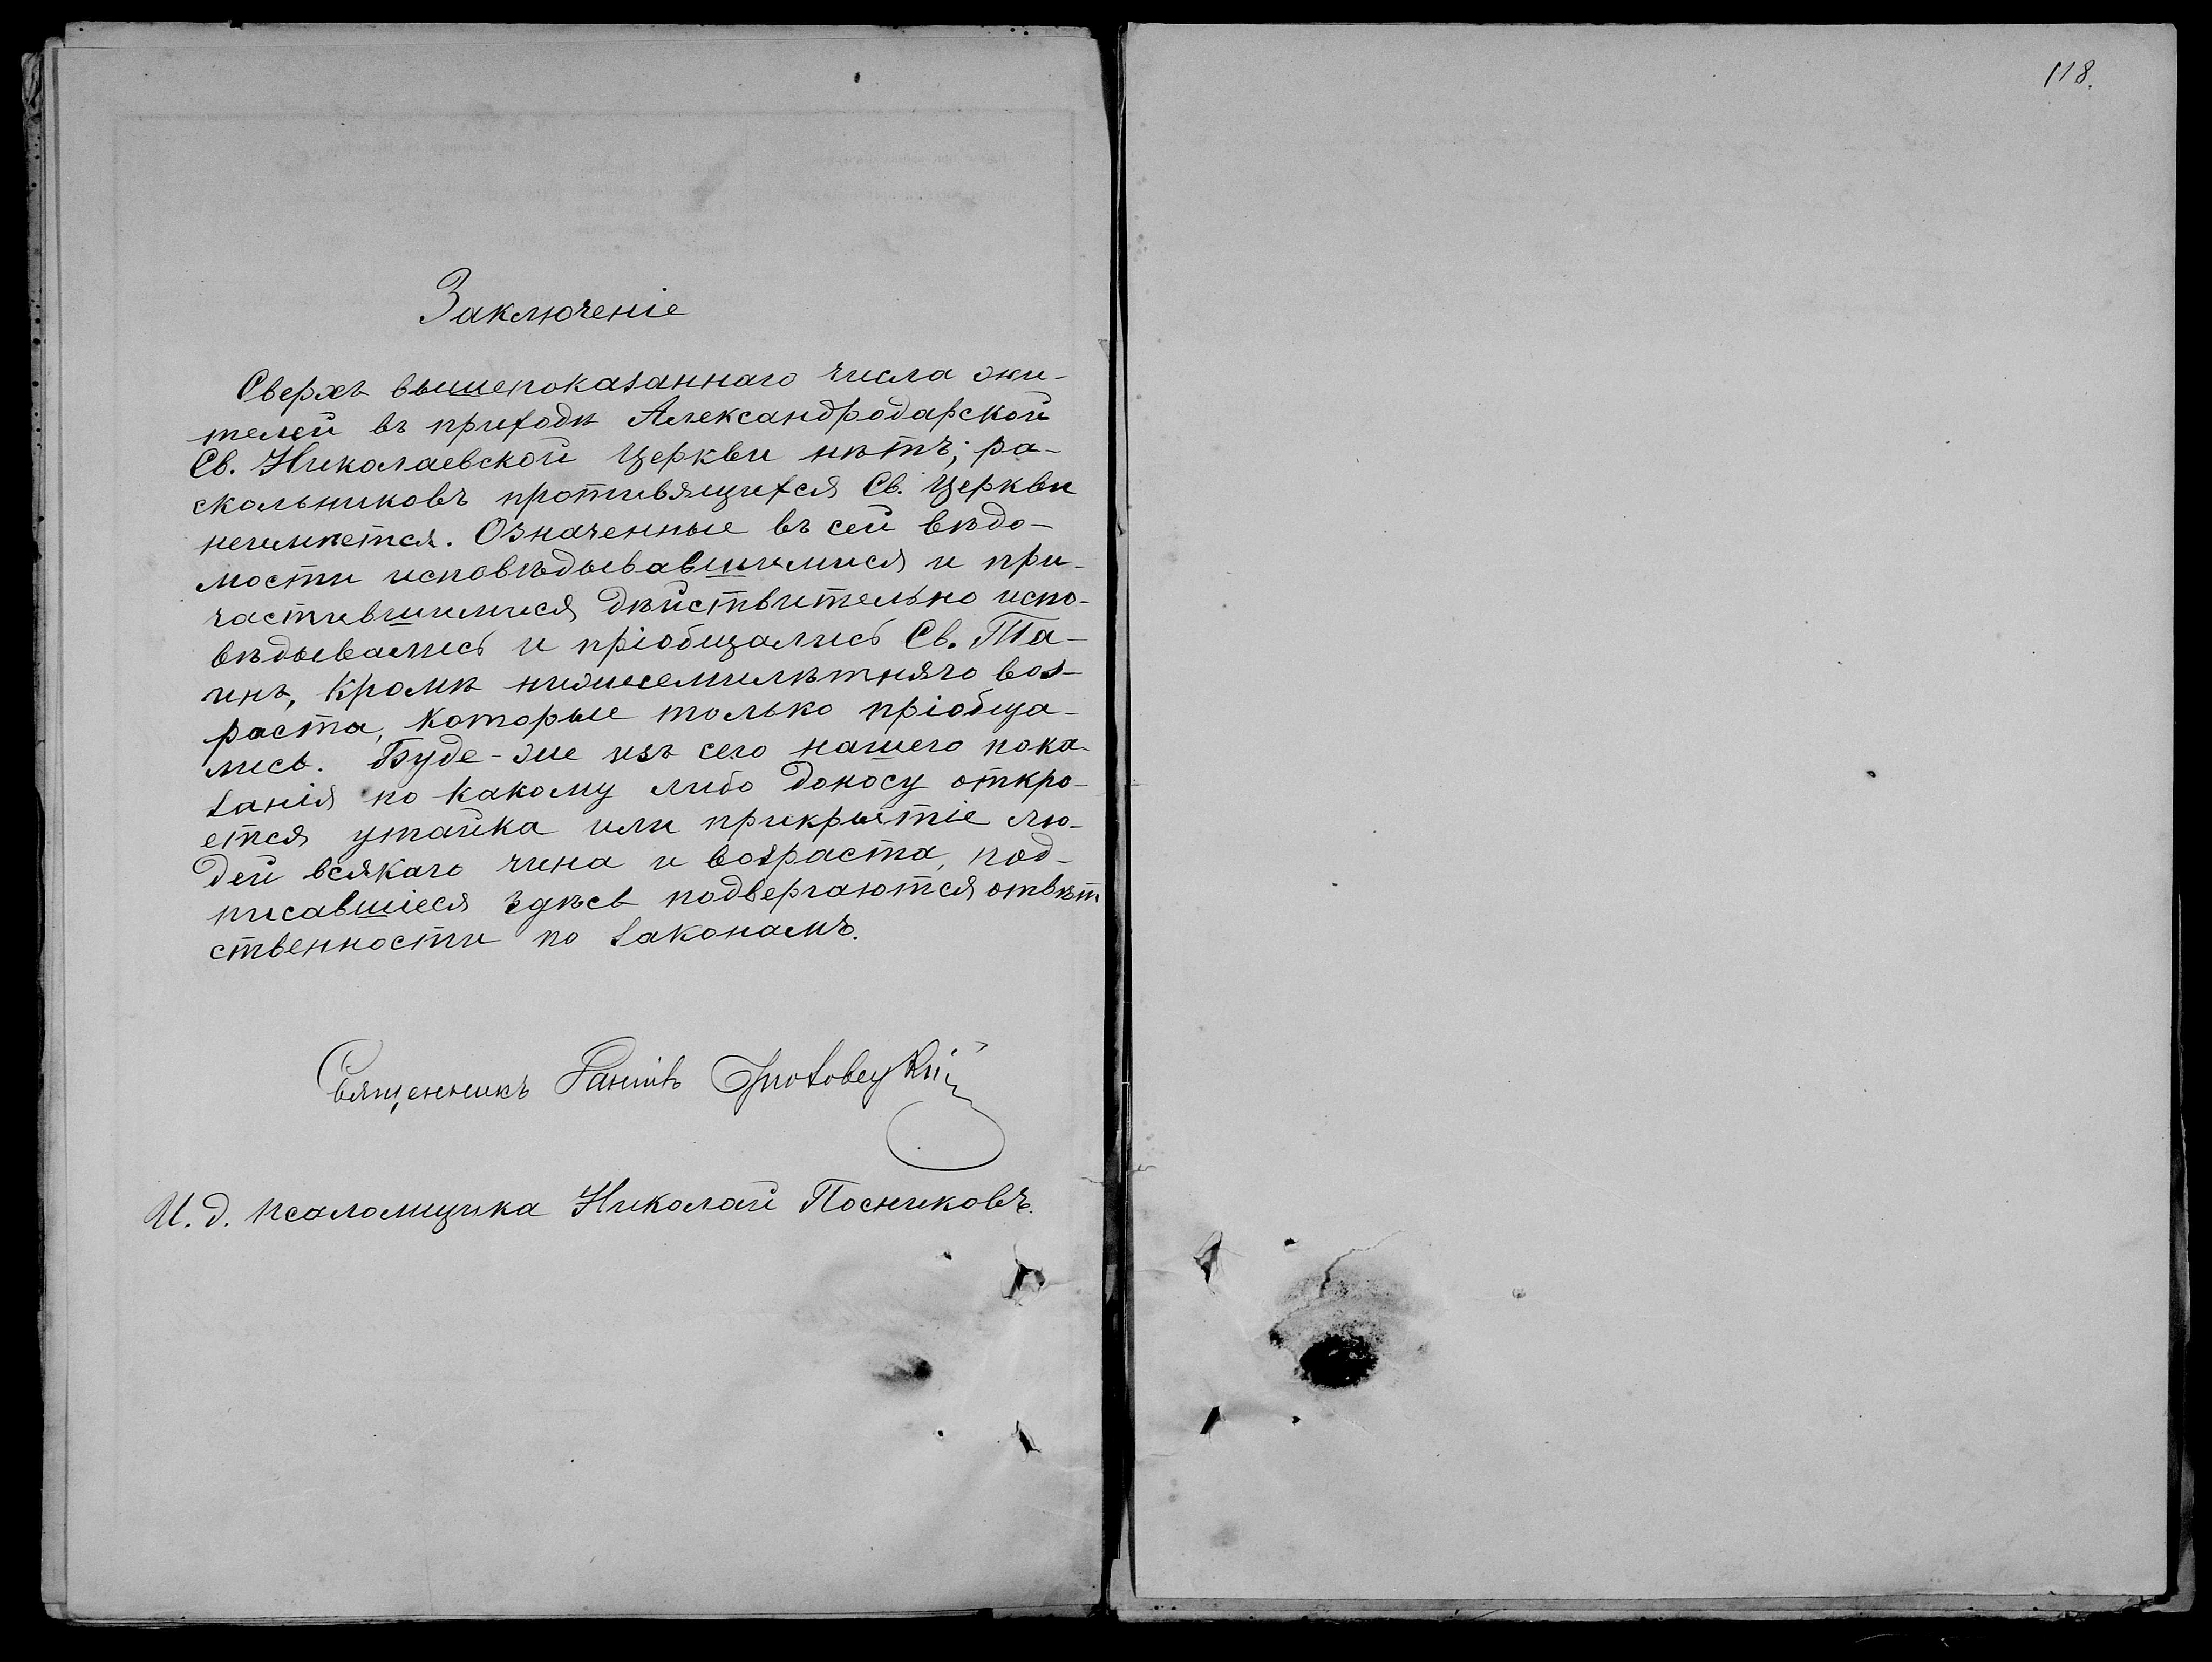 118.
Заключеніе
Сверхъ вышепоказаннаго числа жи-
телей въ приходѣ Александродарской
Св. Николаевской Церкви нѣтъ; ра-
скольниковъ противящихся Св. Церкви
неимѣется. Означенные въ сей вѣдо-
мости исповѣдывавшимися и при-
частившимися дѣйствительно испо-
вѣдывались и пріобщались Св. Та-
инъ, кромѣ нижесемилѣтняго воз-
раста, которые только пріобща-
лись. Буде-же изъ сего нашего пока-
занія по какому либо доносу откро-
ется утайка или прикрытіе лю-
дей всякаго чина и возраста, под-
писавшіеся здѣсь подвергаются отвѣт
ственности по законамъ.
Священникъ
И. д. псаломщика Николай Посниковъ.